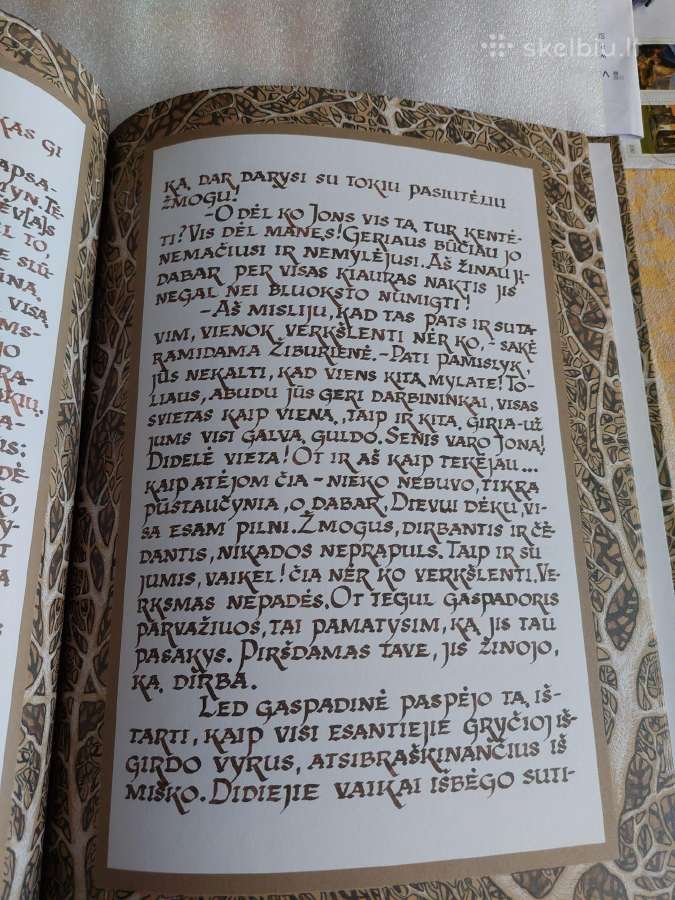 skelbiu.l
KAS GI
APSA-
MYN. TĖ-
ĖV[A]S
L TO,
E SLŪ-
ŪNA.
VISĄ
MS-
JO
RA-
KIŲ.
A-
US:
DĖ
O,
Y-
T
A
KĄ DAR DARYSI SU TOKIU PASIUTĖLIU
ŽMOGU!
-O DĖL KO JONS VIS TĄ TUR KENTĖ-
TI? VIS DĖL MANĘS! GERIAUS BŪČIAU JO
NEMAČIUSI IR NEMYLĖJUSI. AŠ ŽINAU JI-
DABAR PER VISAS KIAURAS NAKTIS JIS
NEGAL NEI BLUOKSTO NUMIGTI!
-AŠ MISLIJU, KAD TAS PATS IR SU TA-
VIM, VIENOK VERKŠLENTI NĖR KO, - SAKĖ
RAMIDAMA ŽIBURIENĖ. - PATI PAMISLYK,
JŪS NEKALTI, KAD VIENS KITĄ MYLATE! TO-
LIAUS, ABUDU JŪS GERI DARBININKAI, VISAS
SVIETAS KAIP VIENĄ, TAIP IR KITĄ GIRIA-UŽ
JUMS VISI GALVĄ GULDO. SENIS VARO JONĄ!
DIDELĖ VIETA! OT IR AŠ KAIP TEKĖJAU...
KAIP ATĖJOM ČIA - NIEKO NEBUVO, TIKRA
PŪSTAUČYNIA, O DABAR, DIEVUI DĖKU, VI-
SA ESAM PILNI. ŽMOGUS, DIRBANTIS IR ČĖ-
DANTIS, NIKADOS NEPRAPULS. TAIP IR SU
JUMIS, VAIKEL! ČIA NĖR KO VERKŠLENTI. VE-
RKSMAS NEPADĖS. OT TEGUL GASPADORIS
PARVAŽIUOS, TAI PAMATYSIM, KĄ JIS TAU
PASAKYS. PIRŠDAMAS TAVE, JIS ŽINOJO,
KĄ DIRBA.
LED GASPADINĖ PASPĖJO TĄ IŠ-
TARTI, KAIP VISI ESANTIEJIE GRYČIOJ IŠ-
GIRDO VYRUS, ATSIBRAŠKINANČIUS IŠ
MIŠKO. DIDIEJIE VAIKAI IŠBĖGO SUTI-